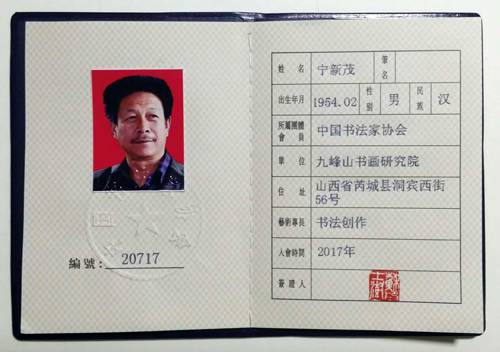 編號: 20717
姓名 宁新茂 筆名
出生年月 1954.02 性别 男 民族 汉
所屬團體會員 中国书法家协会
單位 九峰山书画研究院
住址 山西省芮城县洞宾西街
56号
藝術專長 书法创作
入會時間 2017年
簽證人